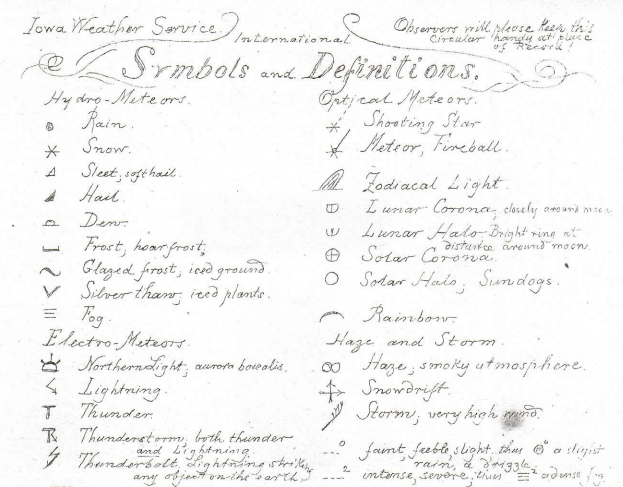 Iowa Weather Service.
International
Observers will please keep this
circular handy at place
of Record!
Symbols and Definitions.
Hydro-Meteors.
Rain.
Snow.
Sleet, softhail.
Hail.
Dew.
Frost, hoarfrost,
Glazed frost, iced ground.
Silver thaw; iced plants.
Fog.
Electro-Meteors.
Northern Light; aurora borealis.
Lightning.
Thunder.
Thunderstorm, both thunder
and Lightning.
Thunderbolt, Lightning striking
any object on the earth
Optical Meteors.
Shooting Star
Meteor, Fireball.
Zodiacal Light.
Lunar Corona, closely around moon
Lunar Halo Bright ring at
distance around moon.
Solar Corona.
Solar Halo, Sundogs.
Rainbow.
Haze and Storm.
Haze, smoky atmosphere.
Snowdrift.
Storm, very high wind.
0 faint, feeble, slight, thus 0 a slight
rain, a drizzle,
2 intense, severe, thus 2 a dense fog